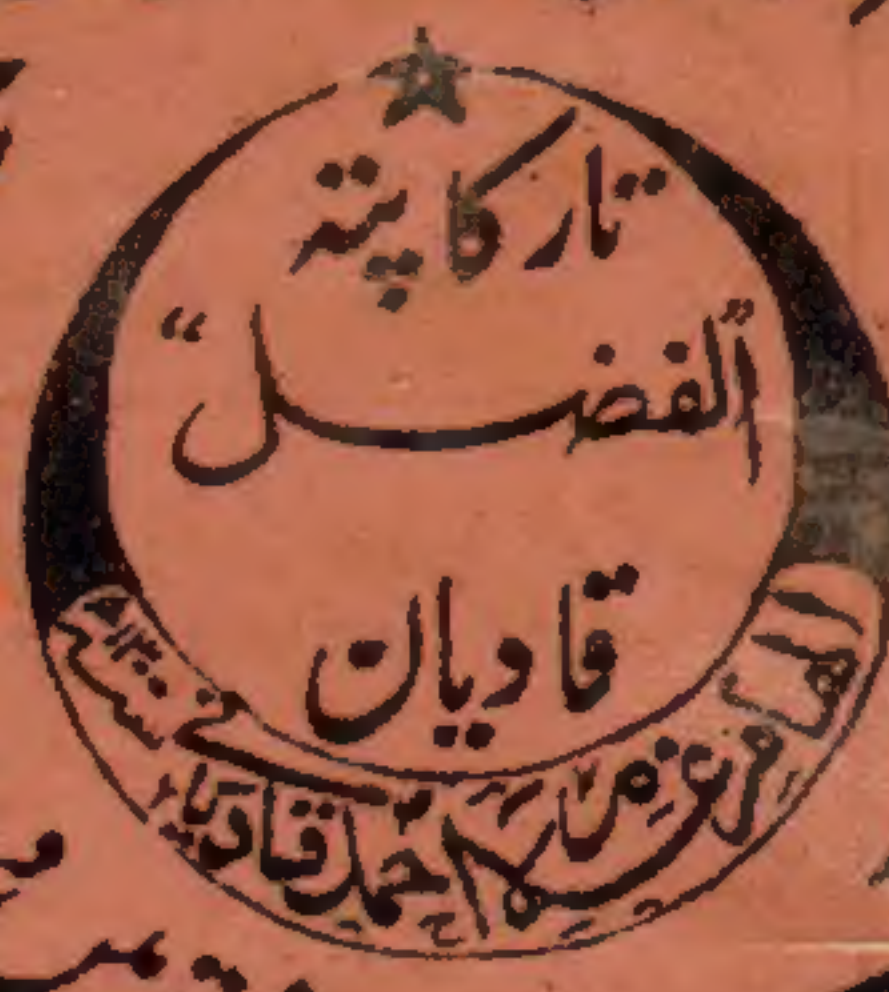 تار کا پتہ
"الفضل"
قادیان
مرزا غلام احمد قادیانی